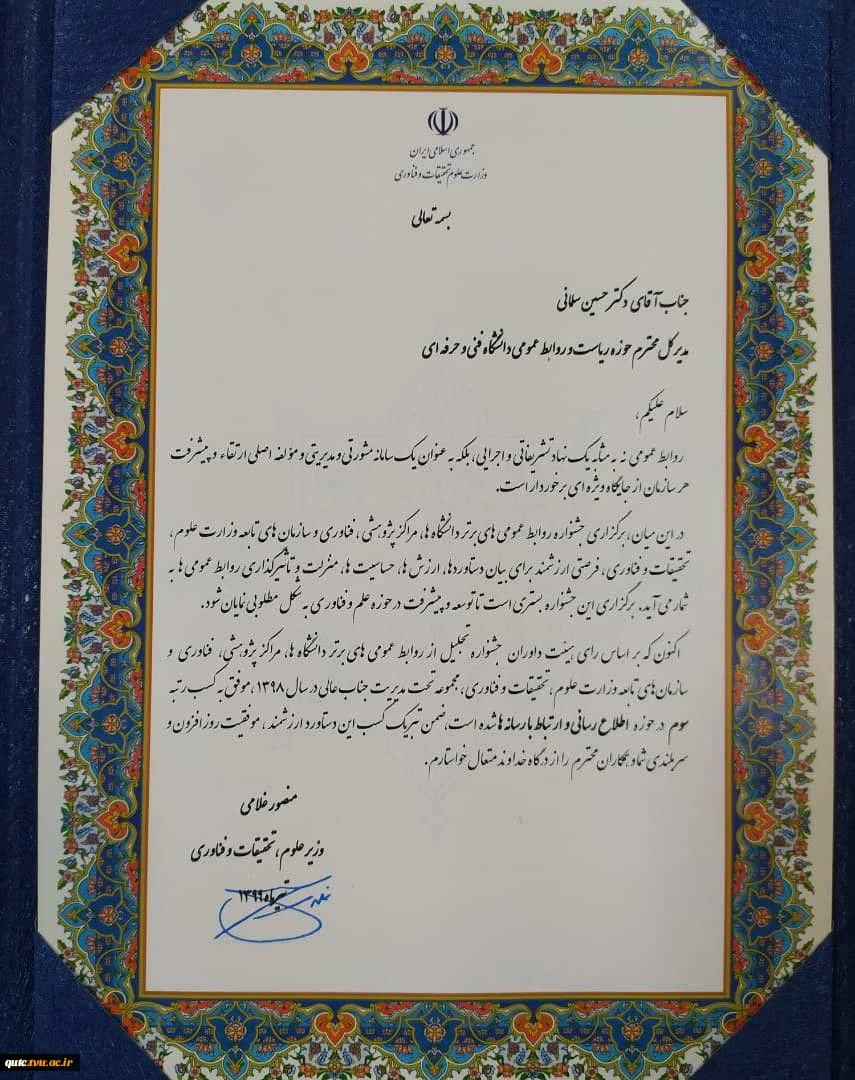 جمهوری اسلامی ایران
وزارت علوم تحقیقات و فناوری
بسمه تعالی
جناب آقای دکتر حسین سلمانی
مدیر کل محترم حوزه ریاست و روابط عمومی دانشگاه فنی و حرفه ای
سلام علیکم،
روابط عمومی نه به مثابه یک نهاد تشریفاتی و اجرایی، بلکه به عنوان یک سامانه مشورتی و مدیریتی و مؤلفه اصلی ارتقاء و پیشرفت
هر سازمان از جایگاه ویژه ای برخوردار است.
در این میان، برگزاری جشنواره روابط عمومی های برتر دانشگاه ها، مراکز پژوهشی، فناوری و سازمان های تابعه وزارت علوم،
تحقیقات و فناوری، فرصتی ارزشمند برای بیان دستاوردها، ارزش ها، حساسیت ها، منزلت و تأثیرگذاری روابط عمومی ها به
شمار می آید. برگزاری این جشنواره بستری است تا توسعه و پیشرفت در حوزه علم و فناوری به شکل مطلوبی نمایان شود.
اکنون که بر اساس رای هیئت داوران جشنواره تجلیل از روابط عمومی های برتر دانشگاه ها، مراکز پژوهشی، فناوری و
سازمان های تابعه وزارت علوم، تحقیقات و فناوری، مجموعه تحت مدیریت جناب عالی در سال ۱۳۹۸، موفق به کسب رتبه
سوم در حوزه اطلاع رسانی و ارتباط با رسانه ها شده است، ضمن تبریک کسب این دستاورد ارزشمند، موفقیت روزافزون و
سربلندی شما و همکاران محترم را از درگاه خداوند متعال خواستارم.
منصور غلامی
وزیر علوم، تحقیقات و فناوری
تیرماه ۱۳۹۹
qutc.tvu.ac.ir